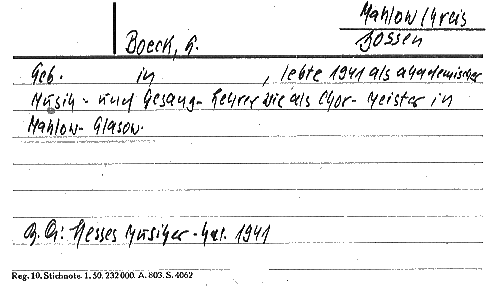 Mahlow/Kreis
Boeck, G. Zossen
Geb. in , lebte 1941 als akademischer
Musik- und Gesang-Lehrer wie als Chor-Meister in
Mahlow-Glasow.
Hesses Musiker-Kal. 1941
Reg. 10. Stichnote. 1. 50. 232000. A. 803. S. 4062